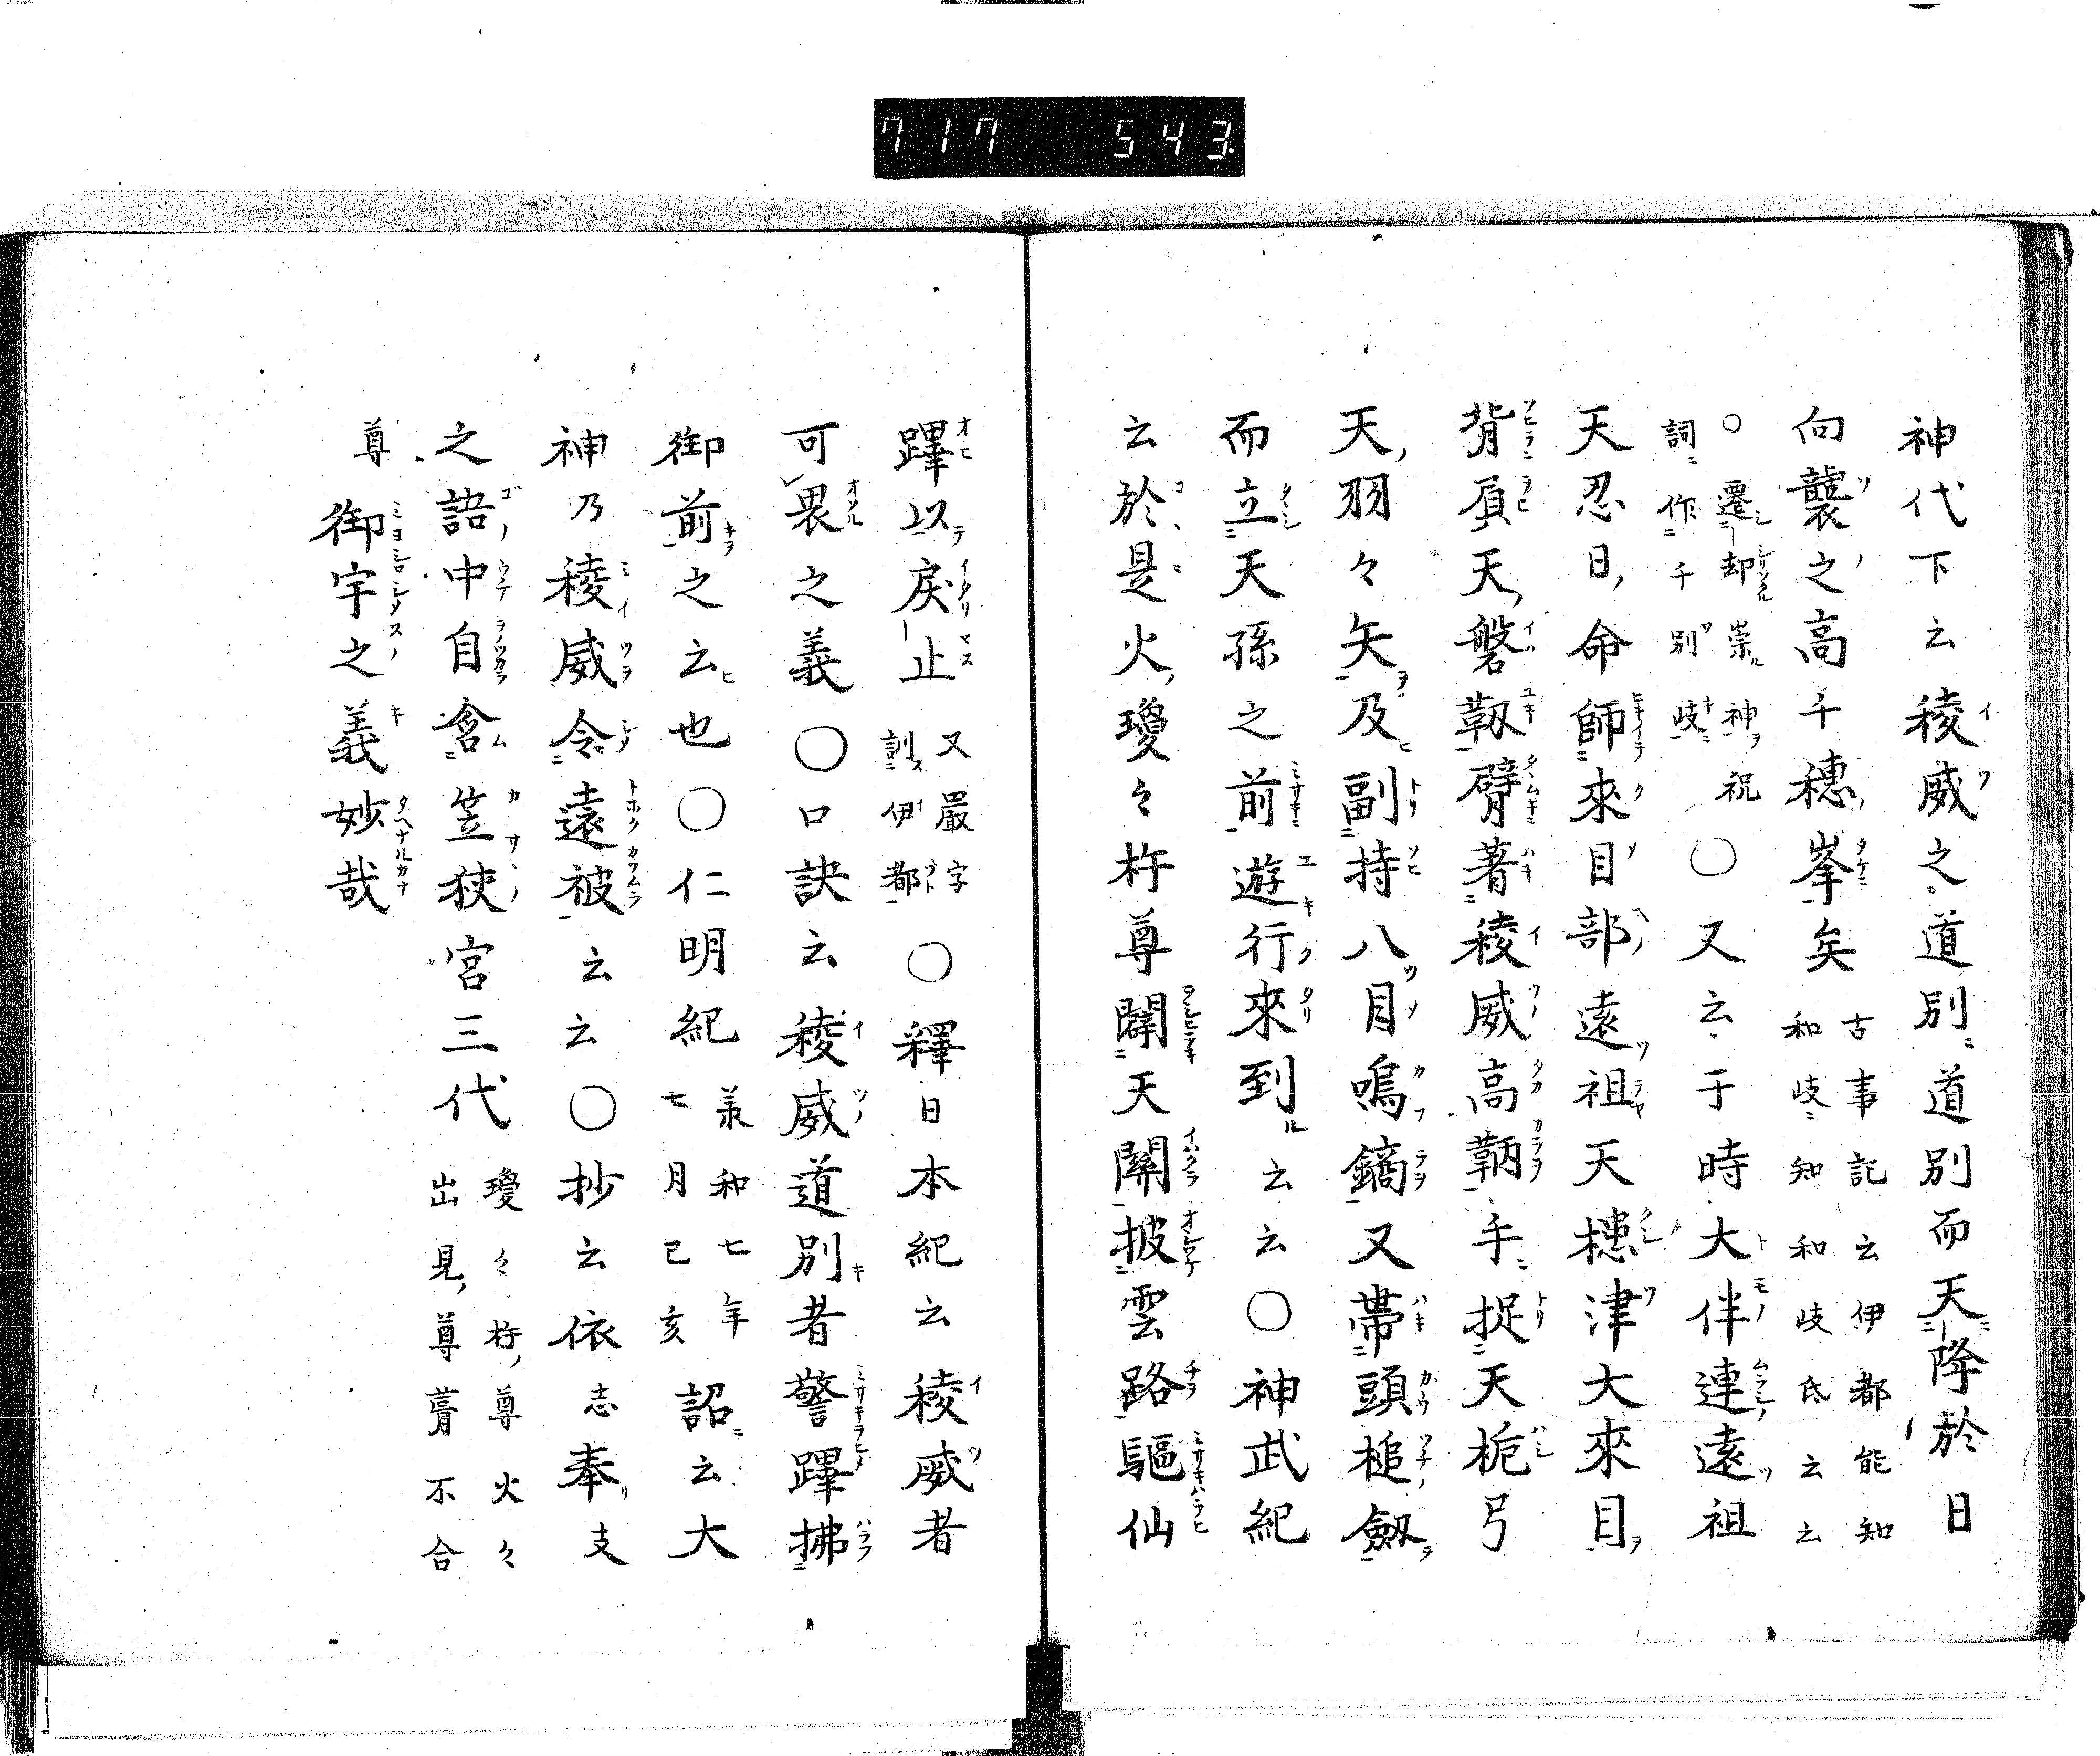 717 543
神代下云稜威之道別道別而天降於日
向襲之高千穗峯矣 古事記云伊都能知
和岐知和岐氐云云
○遷却崇神祝
詞作千別岐 ○又云于時大伴連遠祖
天忍日命師來目部遠祖天槵津大來目
背負天磐靫臂著稜威高鞆手捉天梔弓
天羽々矢及副持八目鳴鏑又帶頭槌劔
而立天孫之前遊行來到云云○神武紀
云於是火瓊々杵尊闢天關披雲路驅仙
蹕以戾止 又嚴字
訓伊都 ○釋日本紀云稜威者
可畏之義○口訣云稜威道別者警蹕拂
御前之云也○仁明紀 羕和七年
七月己亥 詔云大
神乃稜威令遠被云云○抄云依志奉支
之語中自含笠狹宮三代 瓊々杵尊火々
出見尊葺不合
尊
御宇之義妙哉